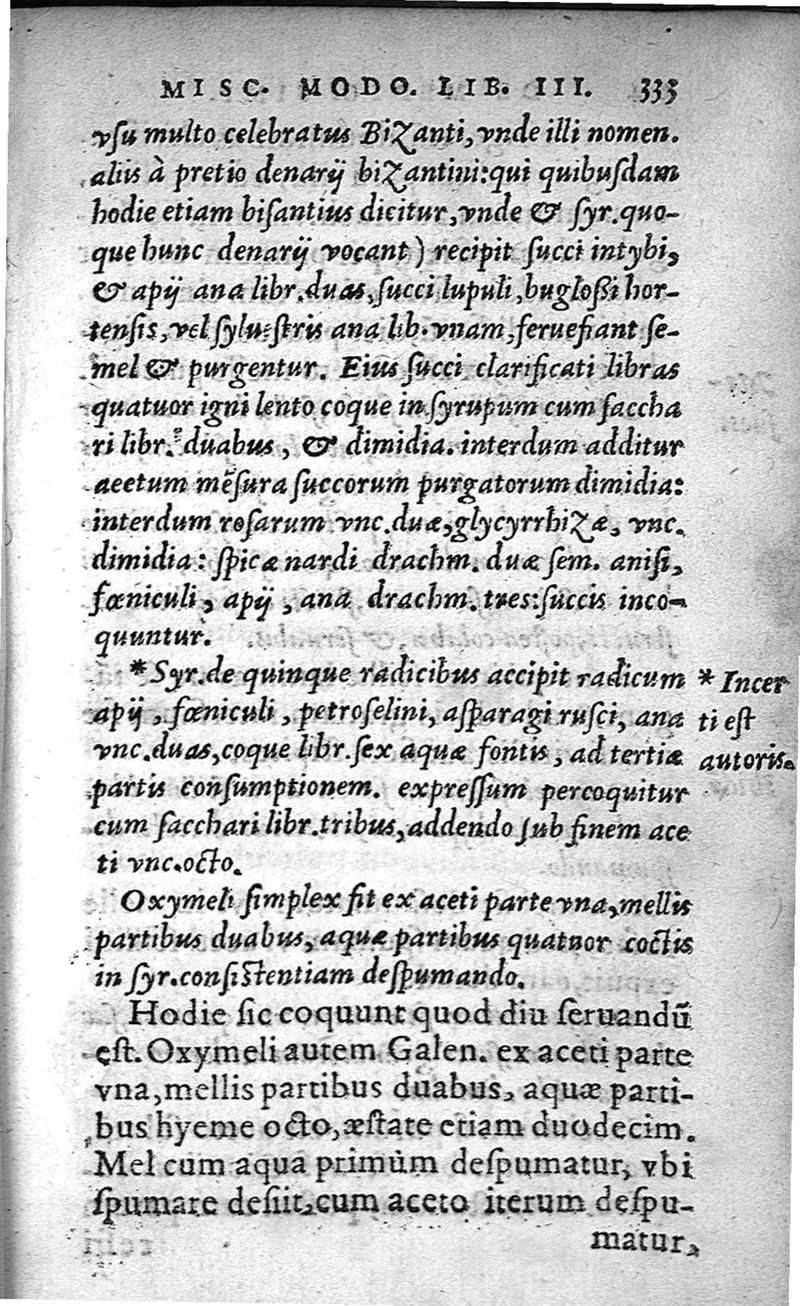 MISC. MODO. LIB. III. 335
vſu multo celebratus Bizanti, vnde illi nomen.
aliis à pretio denarij bizantini: qui quibuſdam
hodie etiam biſantius dicitur, vnde & ſyr. quo-
que hunc denarij vocant) recipit ſucci intybi,
& apij ana libr. duas, ſucci lupuli, bugloſſi hor-
tenſis, vel ſylueſtris ana lib. vnam, feruefiant ſe-
mel & purgentur. Eius ſucci clarificati libras
quatuor igni lento coque in ſyrupum cum ſaccha
ri libr. duabus, & dimidia. interdum additur
aeetum mẽſura ſuccorum purgatorum dimidia:
interdum roſarum vnc. duæ, glycyrrhizæ, vnc.
dimidia: ſpicæ nardi drachm. duæ ſem. aniſi,
fœniculi, apij, ana drachm. tres: ſuccis inco-
quuntur.
*Syr. de quinque radicibus accipit radicum
apij, fœniculi, petroſelini, aſparagi ruſci, ana
vnc. duas, coque libr. ſex aquæ fontis, ad tertiæ
partis conſumptionem. expreſſum percoquitur
cum ſacchari libr. tribus, addendo ſub finem ace
ti vnc. octo.
* Incer
ti eſt
autoris.
Oxymeli ſimplex fit ex aceti parte vna, mellis
partibus duabus, aquæ partibus quatuor coctis
in ſyr. conſiſtentiam deſpumando.
Hodie ſic coquunt quod diu ſeruandũ
eſt. Oxymeli autem Galen. ex aceti parte
vna, mellis partibus duabus, aquæ parti-
bus hyeme octo, æſtate etiam duodecim.
Mel cum aqua primùm deſpumatur, vbi
ſpumare deſiit, cum aceto iterum deſpu-
matur,